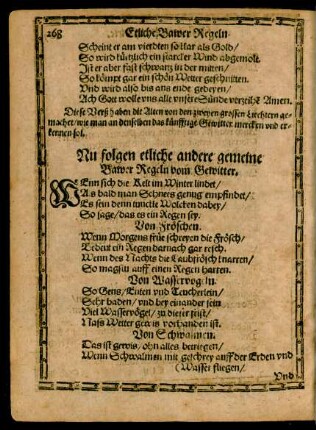 268 Etliche Bawer Regeln
Scheint er am vierdten so klar als Gold/
So wird kürtzlich ein starcker Wind abgemolt.
Ist er aber fast schwartz in der mitten/
So kömpt gar ein schön Wetter geschnitten.
Vnd wird also bis ans ende gedeyen/
Ach Gott wolle vns alle vnsere Sünde verzeihẽ Amen.
Diese Verß haben die Alten von den zweyen grossen Liechtern ge-
macht/ wie man an denselben das künfftige Gewitter mercken vnd er-
kennen sol.
Nu folgen etliche andere gemeine
Bawer Regeln vom Gewitter.
WEnn sich die Kelt im Winter lindet/
Als bald man Schnees genug empfindet/
Es sein denn tunckle Wolcken dabey/
So sage/ das es ein Regen sey.
Von Fröschen.
Wenn Morgens früe schreyen die Frösch/
Bedeut ein Regen darnach gar resch.
Wenn des Nachts die Laubfrösch knarren/
So magstu auff einen Regen harren.
Von Wasservögeln.
So Gens/ Enten vnd Teucherlein/
Sehr baden/ vnd bey einander sein
Viel Wasservögel/ zu dieser frist/
Nass Wetter gewis vorhanden ist.
Von Schwalmen.
Das ist gewis/ ohn alles betriegen/
Wenn Schwalmen mit geschrey auff der Erden vnd
(Wasser fliegen/
Vnd